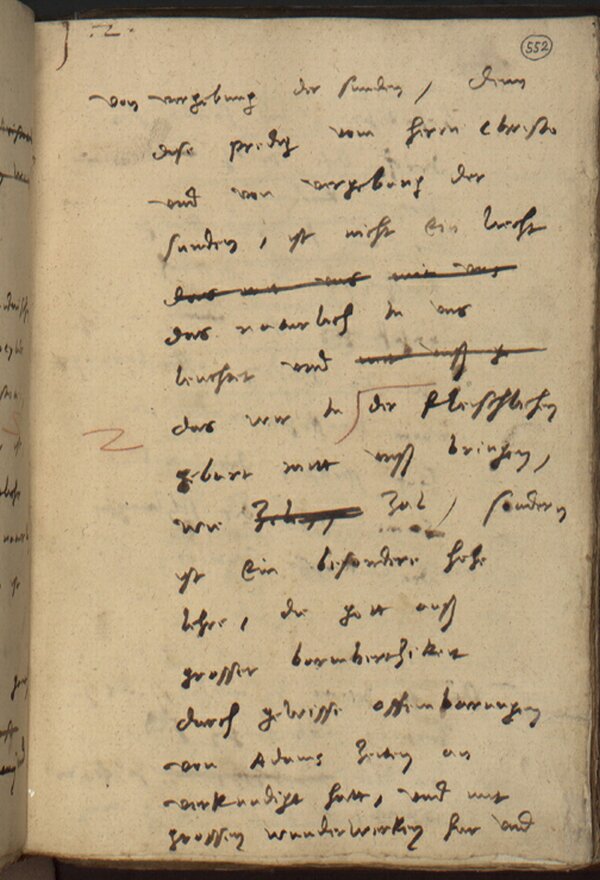 .2.
552
von vergebung der sunden, denn
dise predig vom herrn Christo
und von vergebung der
sunden, ist nicht ein liecht
das naturlich in uns
leuchtet und
das wir in der fleischlichen
geburt mitt uns bringen,
wie zal, sondern
ist ein besondere hohe
lehre, die gott auß
grosser barmhertzikeit
durch gewisse offenbarungen
von Adams zeiten an
verkundigt hatt, und mit
grossen wunderwerken har und